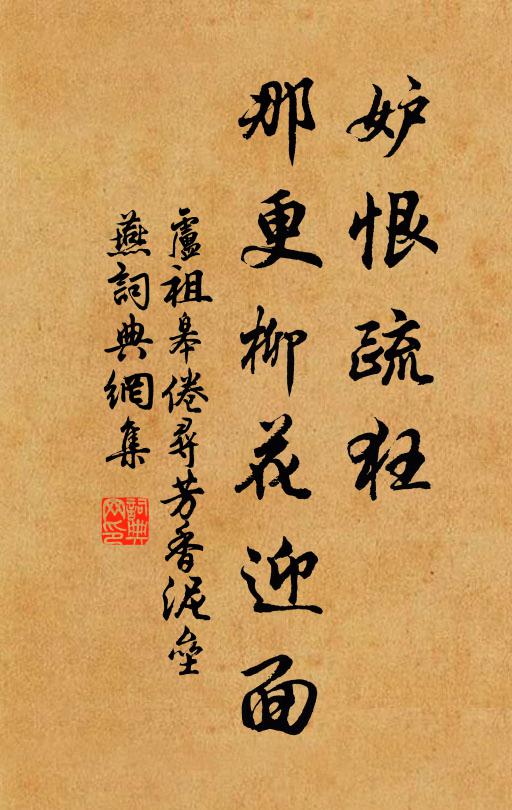 妒恨疏狂
那更柳花迎面
盧祖皋倦尋芳香泥壘
燕詞典網集
詞典
网印